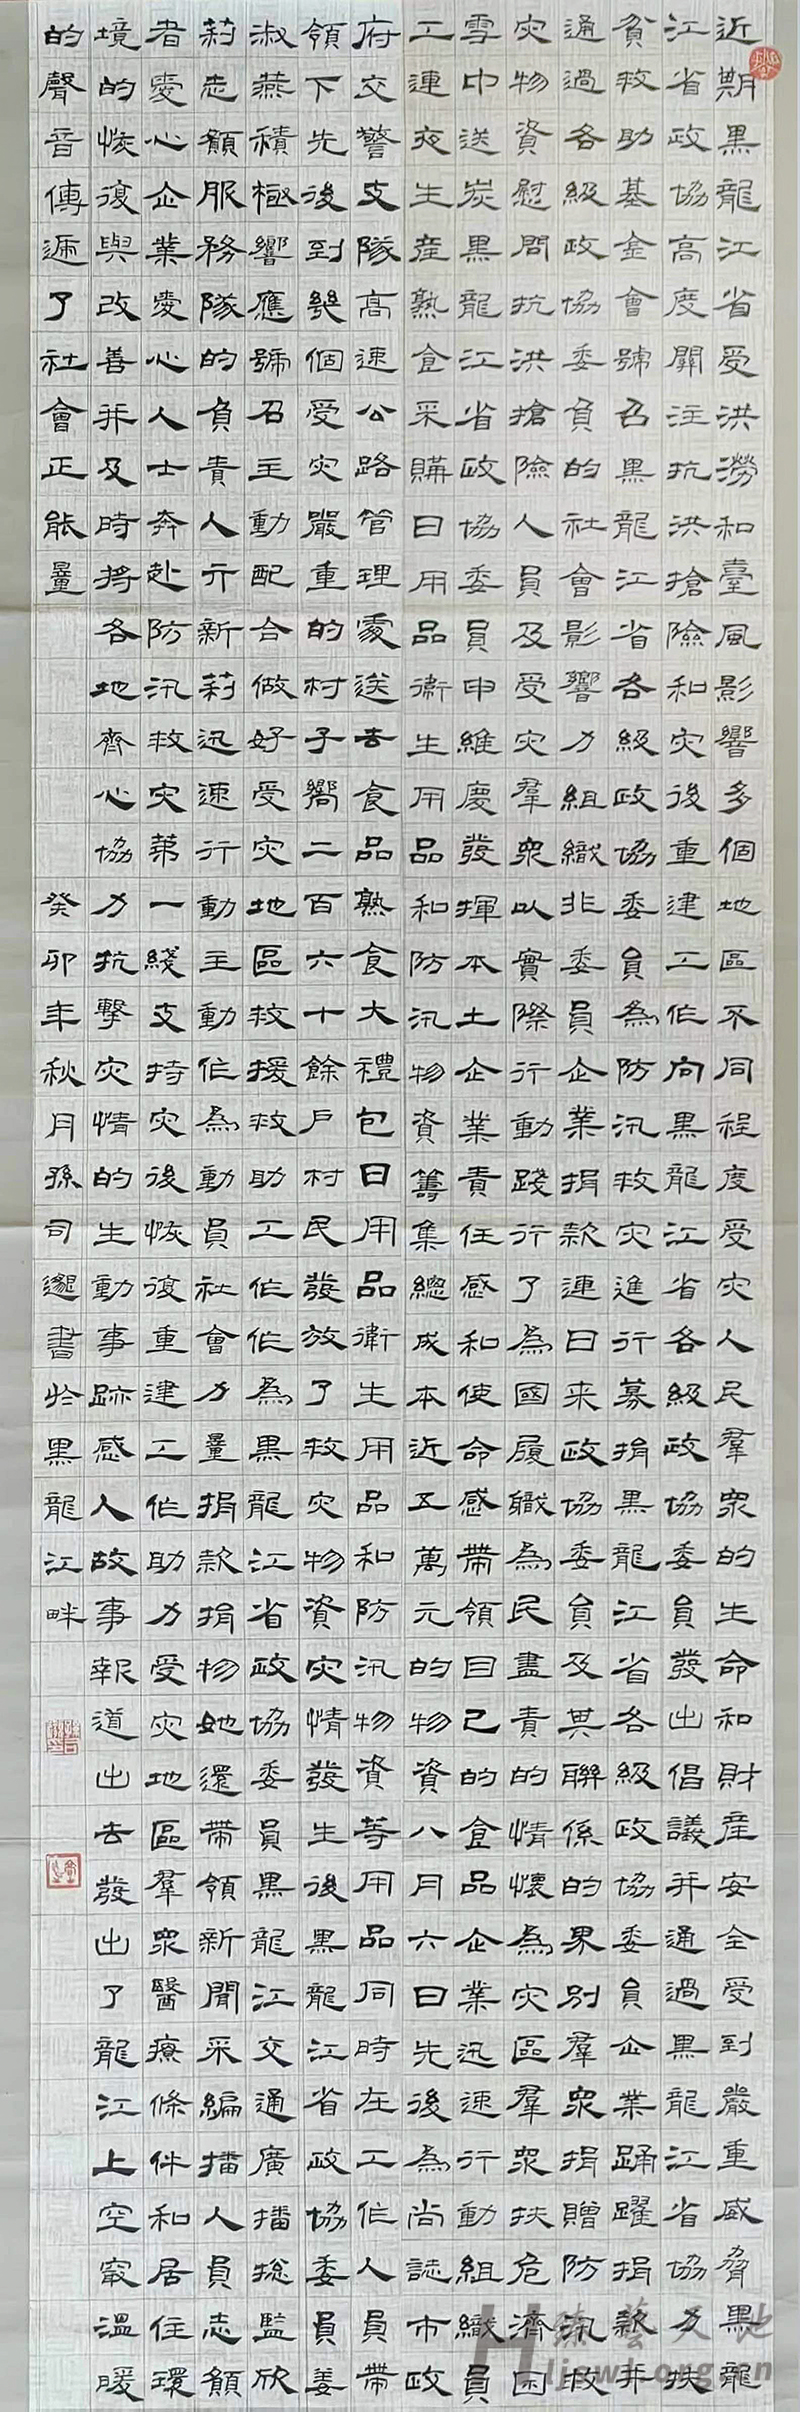 近期黑龍江省受洪澇和臺風影響多個地區不同程度受灾人民羣衆的生命和財産安全受到嚴重威脅黑龍
江省政協高度關注抗洪搶險和灾後重建工作向黑龍江省各級政協委員發出倡議并通過黑龍江省協力扶
貧救助基金會號召黑龍江省各級政協委員為防汛救灾進行募捐黑龍江省各級政協委員企業踊躍捐款并
通過各級政協委負的社會影響力組織非委員企業捐款連日來政協委員及其聯係的界別羣衆捐贈防汛救
灾物資慰問抗洪搶險人員及受灾羣衆以實際行動踐行了為國履職為民盡責的情懷為灾區羣衆扶危濟困
雪中送炭黑龍江省政協委員申維慶發揮本土企業責任感和使命感帶領自己的食品企業迅速行動組織員
工連夜生産熟食采購日用品衛生用品和防汛物資籌集總成本近五萬元的物資八月六日先後為尚誌市政
府交警支隊高速公路管理處送去食品熟食大禮包日用品衛生用品和防汛物資等用品同時在工作人員帶
領下先後到幾個受灾嚴重的村子嚮二百六十餘户村民發放了救灾物資灾情發生後黑龍江省政協委員姜
淑燕積極響應號召主動配合做好受灾地區救援救助工作作為黑龍江省政協委員黑龍江交通廣播総監欣
莉志願服務隊的負責人亓新莉迅速行動主動作為動員社會力量捐款捐物她還帶領新聞采編播人員志願
者愛心企業愛心人士奔赴防汛救灾第一綫支持灾後恢復重建工作助力受灾地區羣衆醫療條件和居住環
境的恢復與改善并及時將各地齊心協力抗擊灾情的生動事跡感人故事報道出去發出了龍江上空最溫暖
的聲音傳遞了社會正能量 癸卯年秋月孫司邈書於黑龍江畔
藝天地
ljswl.org.cn